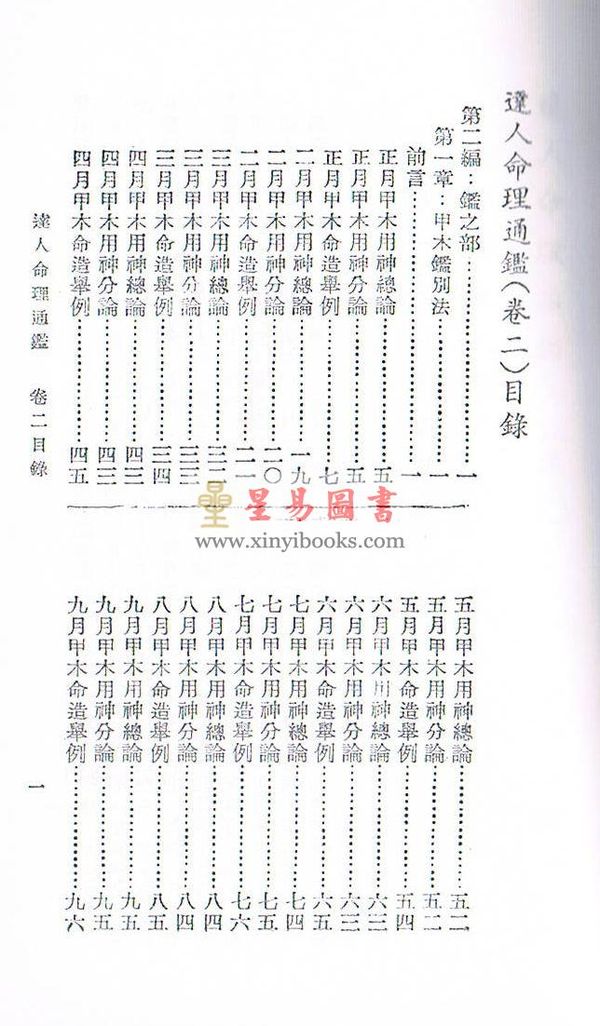 達人命理通鑑(卷二)目錄
第二編:鑑之部……………………一
第一章:甲木鑑別法……………一
前言……………………一
正月甲木用神總論……………五
正月甲木用神分論……………五
正月甲木命造舉例……………七
二月甲木用神總論……………一九
二月甲木用神分論……………二〇
二月甲木命造舉例……………二一
三月甲木用神總論……………三二
三月甲木用神分論……………三三
三月甲木命造舉例……………三四
四月甲木用神總論……………四三
四月甲木用神分論……………四三
四月甲木命造舉例……………四五
五月甲木用神總論……………五二
五月甲木用神分論……………五二
五月甲木命造舉例……………五四
六月甲木用神總論……………六三
六月甲木用神分論……………六三
六月甲木命造舉例……………六五
七月甲木用神總論……………七四
七月甲木用神分論……………七五
七月甲木命造舉例……………七六
八月甲木用神總論……………八四
八月甲木用神分論……………八四
八月甲木命造舉例……………八五
九月甲木用神總論……………九五
九月甲木用神分論……………九五
九月甲木命造舉例……………九六
達人命理通鑑 卷二目錄 一
星易圖書
www.xinyibooks.com